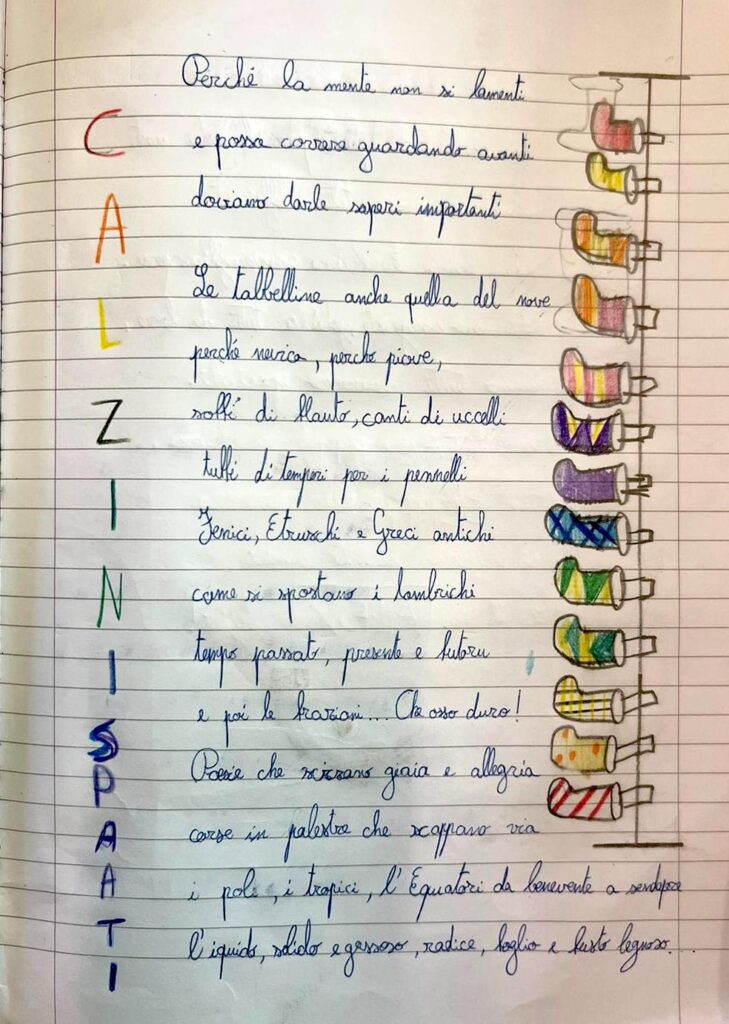 CALZINISPAATI
Perché la mente non si lamenti
e possa correre guardando avanti
doviamo darle saperi importanti
Le talbelline anche quella del nove
perché nevica, perche piove,
soffi di flauto, canti di uccelli
tuffi di temperi per i pennelli
Fenici, Etruschi e Greci antichi
come si spostano i lombrichi
tempo passato, presente e futuru
e poi le frazioni... Che osso duro!
Poesie che scizzano giaia e allegria
corse in palestre che scappano via
i pols, i tropici, l'Equatori da benevente a
l'iquido, solido e gassoso, radice, foglio e fusto legnoso...